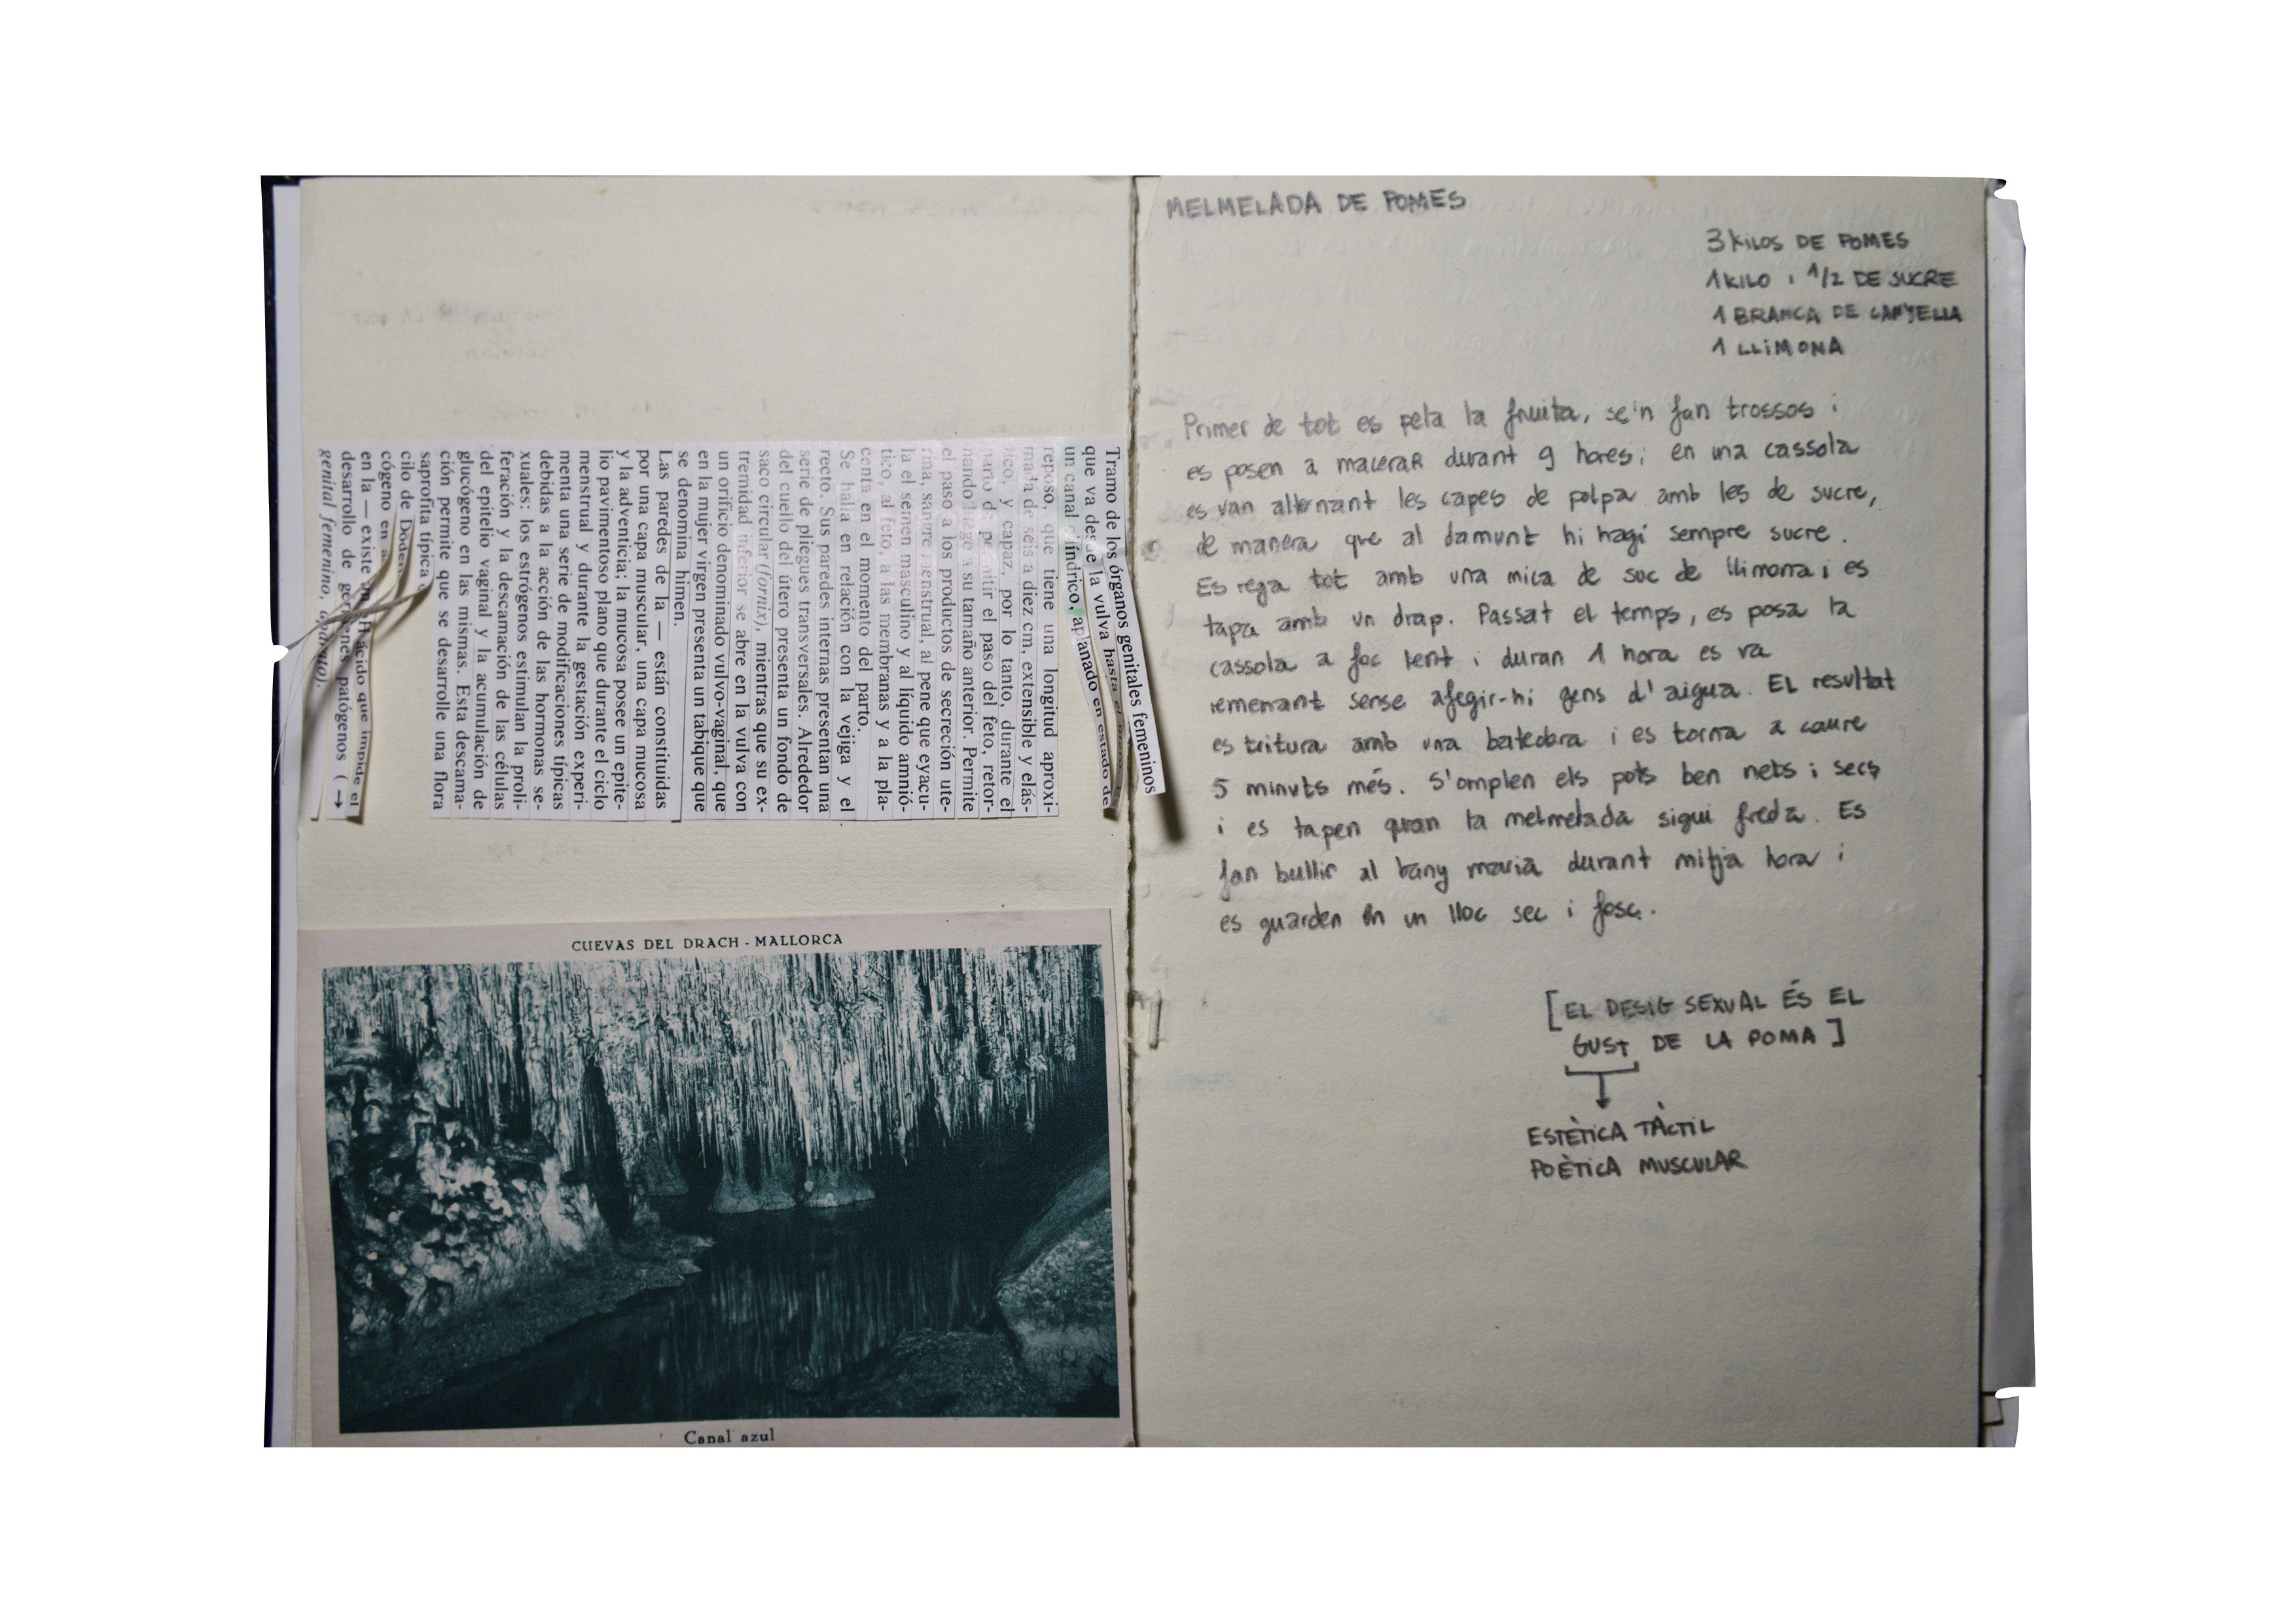 Tramo de los órganos genitales femeninos
que va desde la vulva hasta el
un canal cilíndrico, aplanado en estado de
reposo, que tiene una longitud aproxi-
mada de seis a diez cm, extensible y elás-
tico, y capaz, por lo tanto, durante el
parto de permitir el paso del feto, retor-
nando luego a su tamaño anterior. Permite
el paso a los productos de secreción ute-
rina, sangre menstrual, al pene que eyacu-
la el semen masculino y al líquido amnió-
tico, al feto, a las membranas y a la pla-
centa en el momento del parto.
Se halla en relación con la vejiga y el
recto. Sus paredes internas presentan una
serie de pliegues transversales. Alrededor
del cuello del útero presenta un fondo de
saco circular (fornix), mientras que su ex-
tremidad inferior se abre en la vulva con
un orificio denominado vulvo-vaginal, que
en la mujer virgen presenta un tabique que
se denomina himen.
Las paredes de la — están constituidas
por una capa muscular, una capa mucosa
y la adventicia; la mucosa posee un epite-
lio pavimentoso plano que durante el ciclo
menstrual y durante la gestación experi-
menta una serie de modificaciones típicas
debidas a la acción de las hormonas se-
xuales; los estrógenos estimulan la proli-
feración y la descamación de las células
del epitelio vaginal y la acumulación de
glucógeno en las mismas. Esta descama-
ción permite que se desarrolle una flora
saprofita típica
cilo de
cógeno en
en la — existe un pH ácido que impide el
desarrollo de gérmenes patógenos (→
genital femenino, aparato).
CUEVAS DEL DRACH - MALLORCA
Canal azul
MELMELADA DE POMES
3 KILOS DE POMES
1 KILO i 1/2 DE SUCRE
1 BRANCA DE CANYELLA
1 LLIMONA
Primer de tot es pela la fruita, se'n fan trossos i
es posen a macerar durant 9 hores; en una cassola
es van alternant les capes de polpa amb les de sucre,
de manera que al damunt hi hagi sempre sucre.
Es rega tot amb una mica de suc de llimona i es
tapa amb un drap. Passat el temps, es posa la
cassola a foc lent i duran 1 hora es va
remenant sense afegir-hi gens d'aigua. EL resultat
es tritura amb una batedora i es torna a coure
5 minuts més. S'omplen els pots ben nets i secs
i es tapen quan la melmelada sigui freda. Es
fan bullir al bany maria durant mitja hora i
es guarden en un lloc sec i fosc.
[EL DESIG SEXUAL ÉS EL
GUST DE LA POMA]
ESTÈTICA TÀCTIL
POÈTICA MUSCULAR